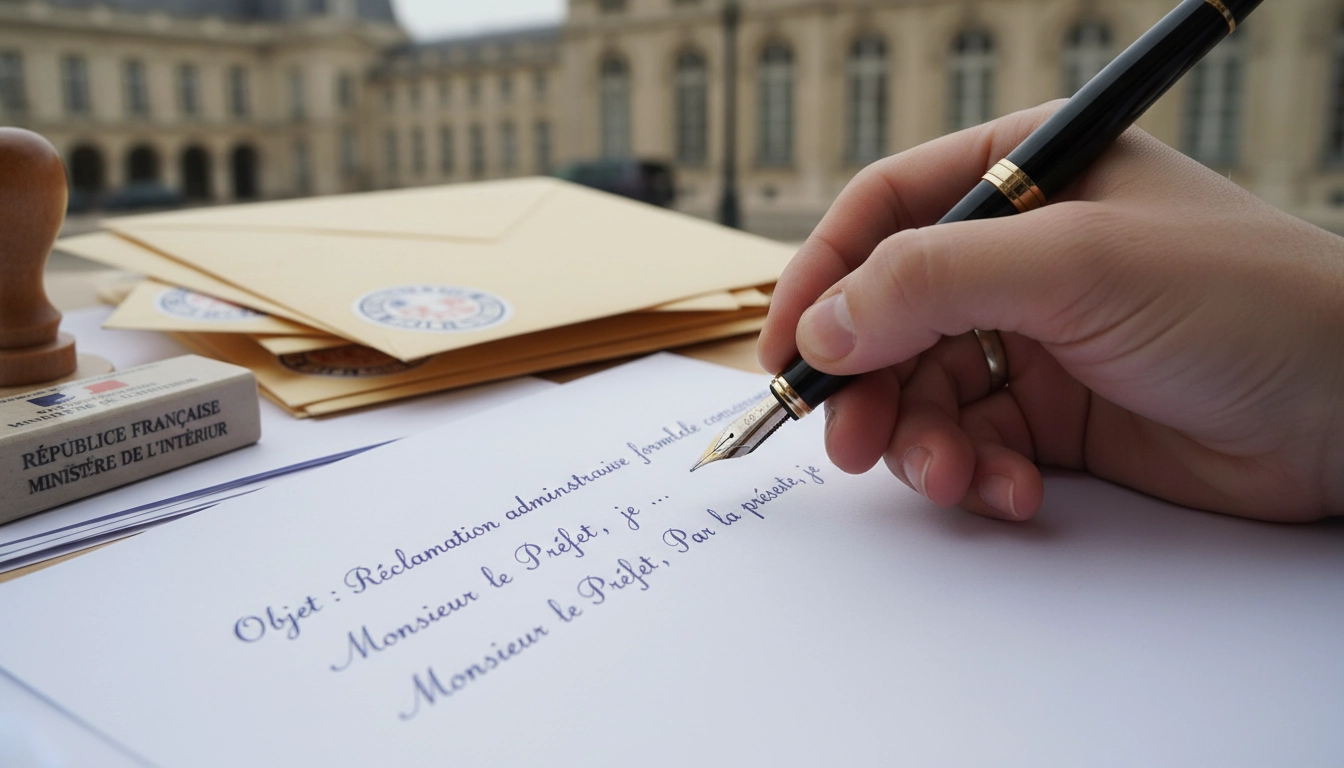 RÉPUBLIQUE FRANÇAISE
MINISTÈRE DE L'INTÉRIUR
Objet : Réclamation adminstrauve formlele
Monsieur le Préfet, je ...
Monsieur le Préfet, Par la préseste, je